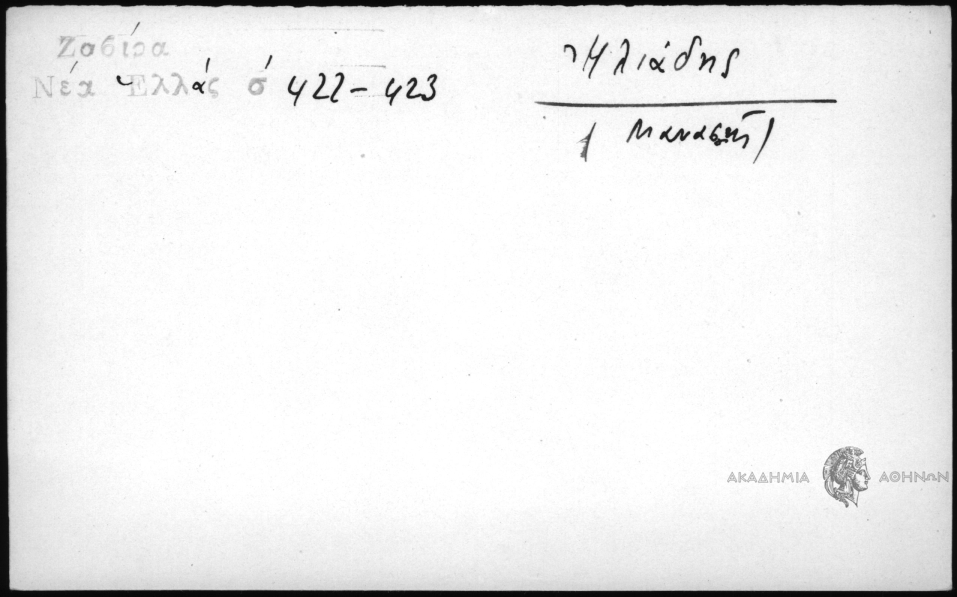 Ζαβίρα
Νέα Ἑλλάς σ 422-423
Ἠλιάδης
(Μανασῆς)
ΑΚΑΔΗΜΙΑ ΑΘΗΝΩΝ